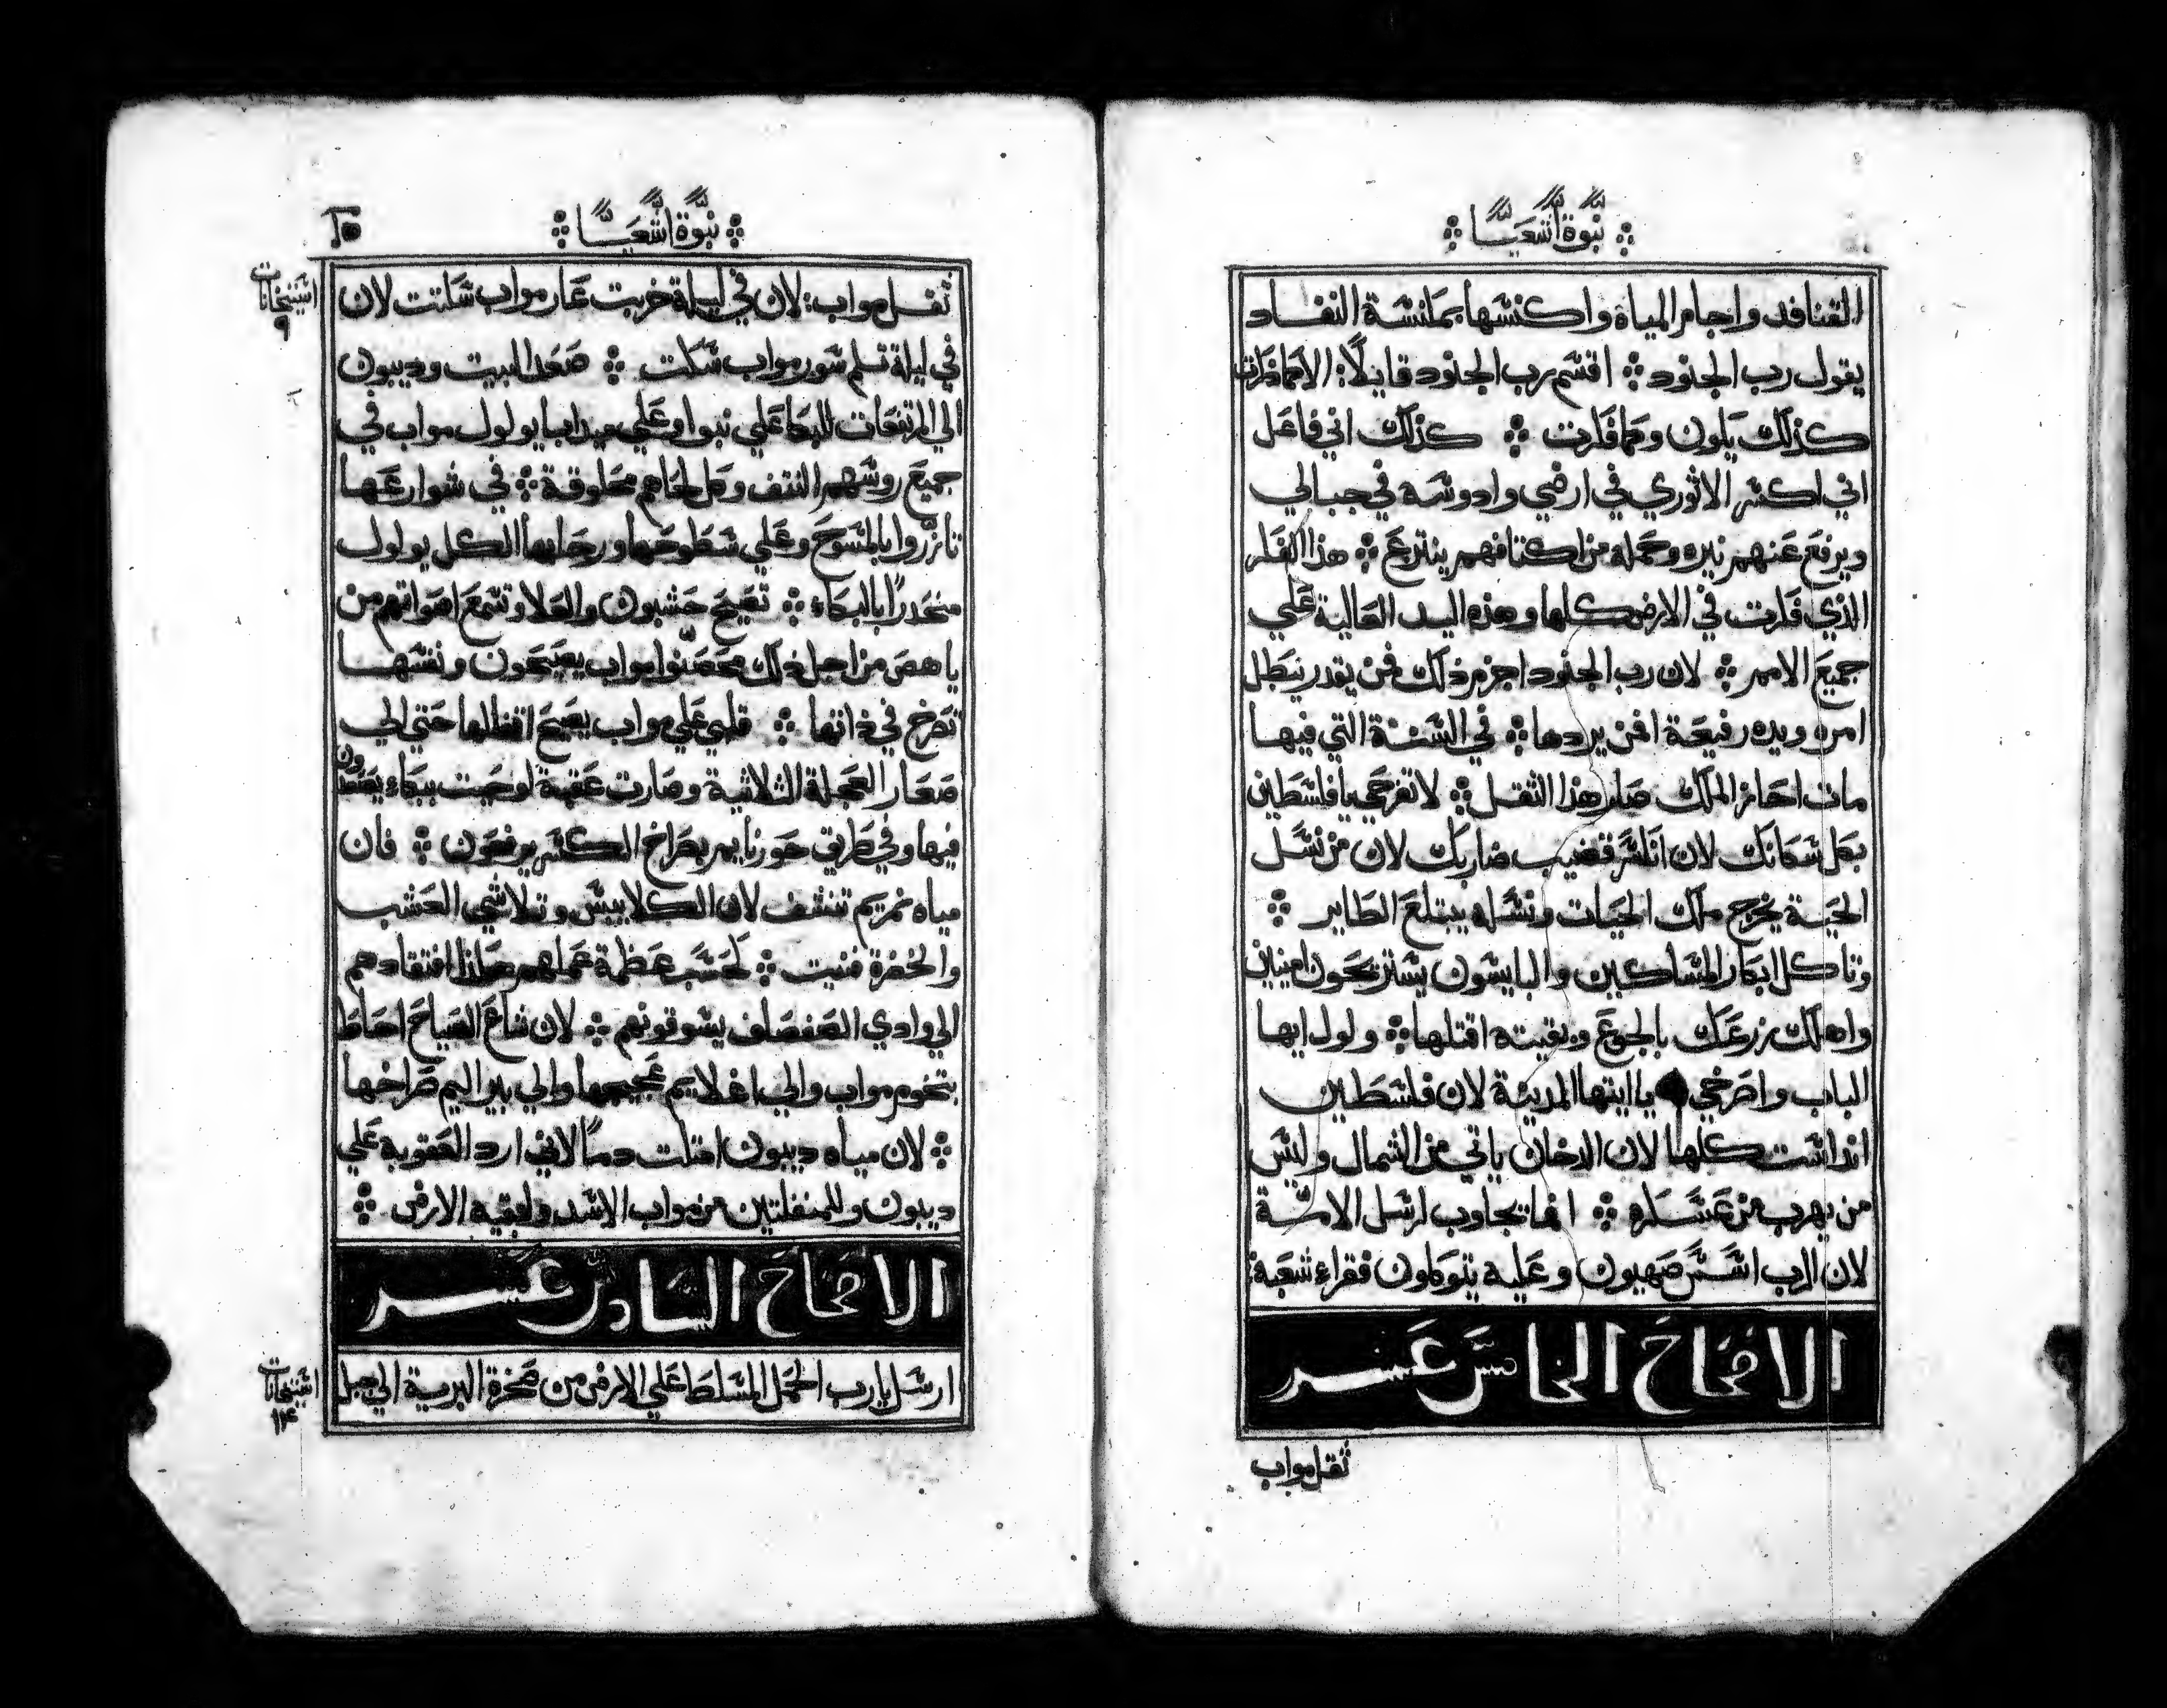 نبوة اشعيا
القنافد واجام المياه واكنسها بمكنسة النفاد
يقول رب الجنود ❖ اقسم رب الجنود قايلًا: الا كما ظننت
كذلك يكون وكما فكرت ❖ كذلك اني فاعل
اني اكسر الاثوري في ارضي وادوسه في جبالي
ويرفع عنهم نيره وحمله من اكتافهم ينتزع ❖ هذا الفكر
الذي فكرت في الارض كلها وهذه اليد العالية علي
جميع الامم ❖ لان رب الجنود اجزم ذلك فمن يقدر يبطل
امره ويده رفيعة افمن يردها ❖ في السنة التي فيها
مات احاز الملك صار هذا الثقل ❖ لا تفرحي يا فلسطين
بكل سكانك لان انكسر قضيب ضاربك لان من نسل
الحية يخرج ملك الحيات ونسله يبتلع الطاير ❖
وتاكل ابكار المساكين والبايسون يستريحون امنين
واهلك زرعك بالجوع وبقيته اقتلها ❖ ولول ايها
الباب واصرخي يا ايتها المدينة لان فلسطين
انداست كلها لان الدخان ياتي من الشمال وليس
من يهرب من عسكره ❖ انما تجاوب لرسل الامة
لان الرب اسس صهيون وعليه يتوكلون فقراء شعبه:
الاصحاح الخامس عسر
ثقل مواب
نبوة اشعيا
ثقل مواب: لان في ليلة خربت عار مواب سكتت لان
في ليلة تسلم سور مواب سكت ❖ صعد البيت وديبون
الي المرتفعات للبكا علي نبوا وعلي ميدابا يولول مواب في
جميع روسهم النتف وكل لحاهم محلوقة ❖ في شوارعها
تازروا بالمسوح وعلي سطوحها ورحابها الكل يولول
منحدرًا بالبكاء ❖ تصيح حشبون والعلا وتسمع اصواتهم من
ياهص من اجل ذلك محصنوا مواب يصيحون ونفسها
تصرخ في ذاتها ❖ قلبي علي مواب يصيح اقفالها حتي الي
صعار العجلة الثلاثية وصارت عقبة لوحيت ببكاء يصعدون
فيها وفي طريق حورنايم بصراخ الكسر يرفعون ❖ فان
مياه نمريم تنشف لان الكلا يبس وتلاشي العشب
والخضرة فنيت ❖ كحسب عظمة عملهم هكذا افتقادهم
الي وادي الصفصاف يسوقونهم ❖ لان شاع الصياح احاط
بتخوم مواب والي اغلايم عجيجها والي بير اليم صراخها
❖ لان مياه ديبون امتلت دمًا لاني ارد العقوبه علي
ديبون وللمنفلتين من مواب الاسد ولبقيه الارض ❖
الاصحاح السادس عسر
ارسل يا رب الحمل المسلط علي الارض من صخرة البرية الي جبل